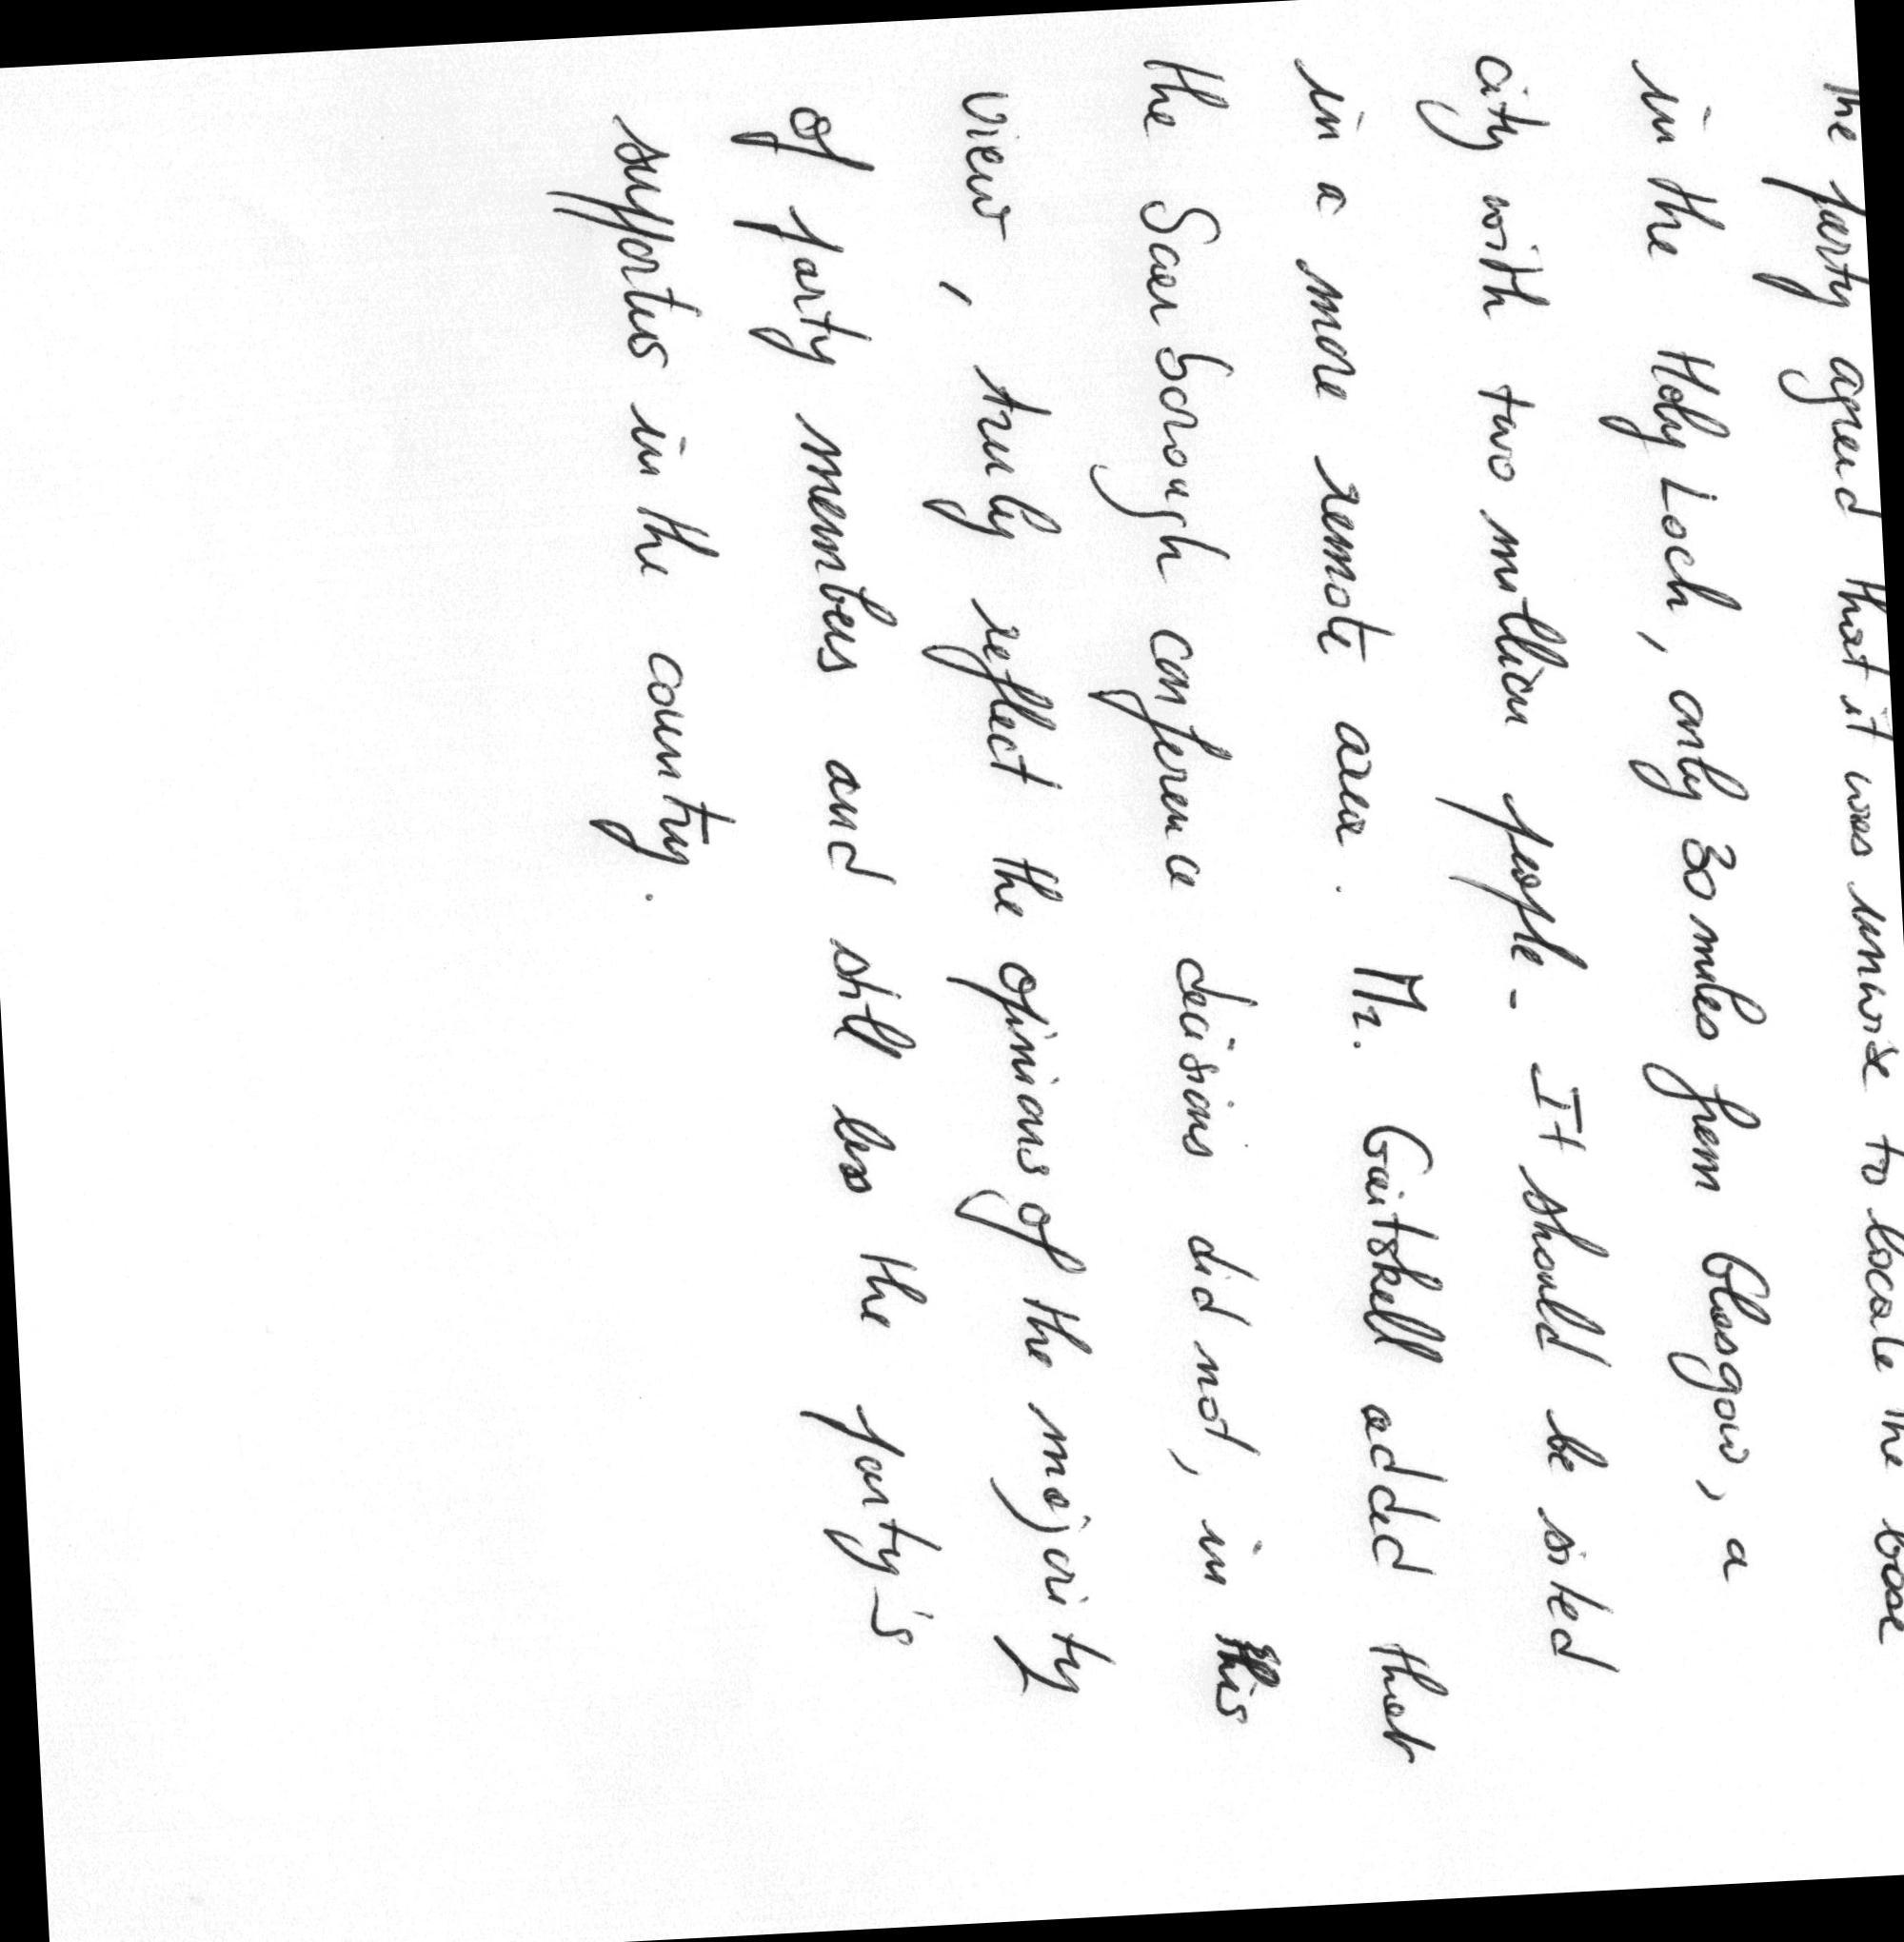 the party agreed that it was unwise to locate the base
in the Holy Loch, only 30 miles from Glasgow, a
city with two million people - It should be sited
in a more remote area. Mr. Gaitskell added that
the Scarborough conference decisions did not, in this
view, truly reflect the opinions of the majority
of party members and still less the party's
supporters in the country.